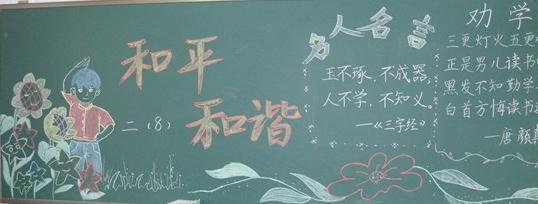 和平
二（8）
和谐
名人名言
玉不琢，不成器，
人不学，不知义。
—《三字经》
劝学
三更灯火五更
正是男儿读书
黑发不知勤学
白首方悔读书
—唐 颜